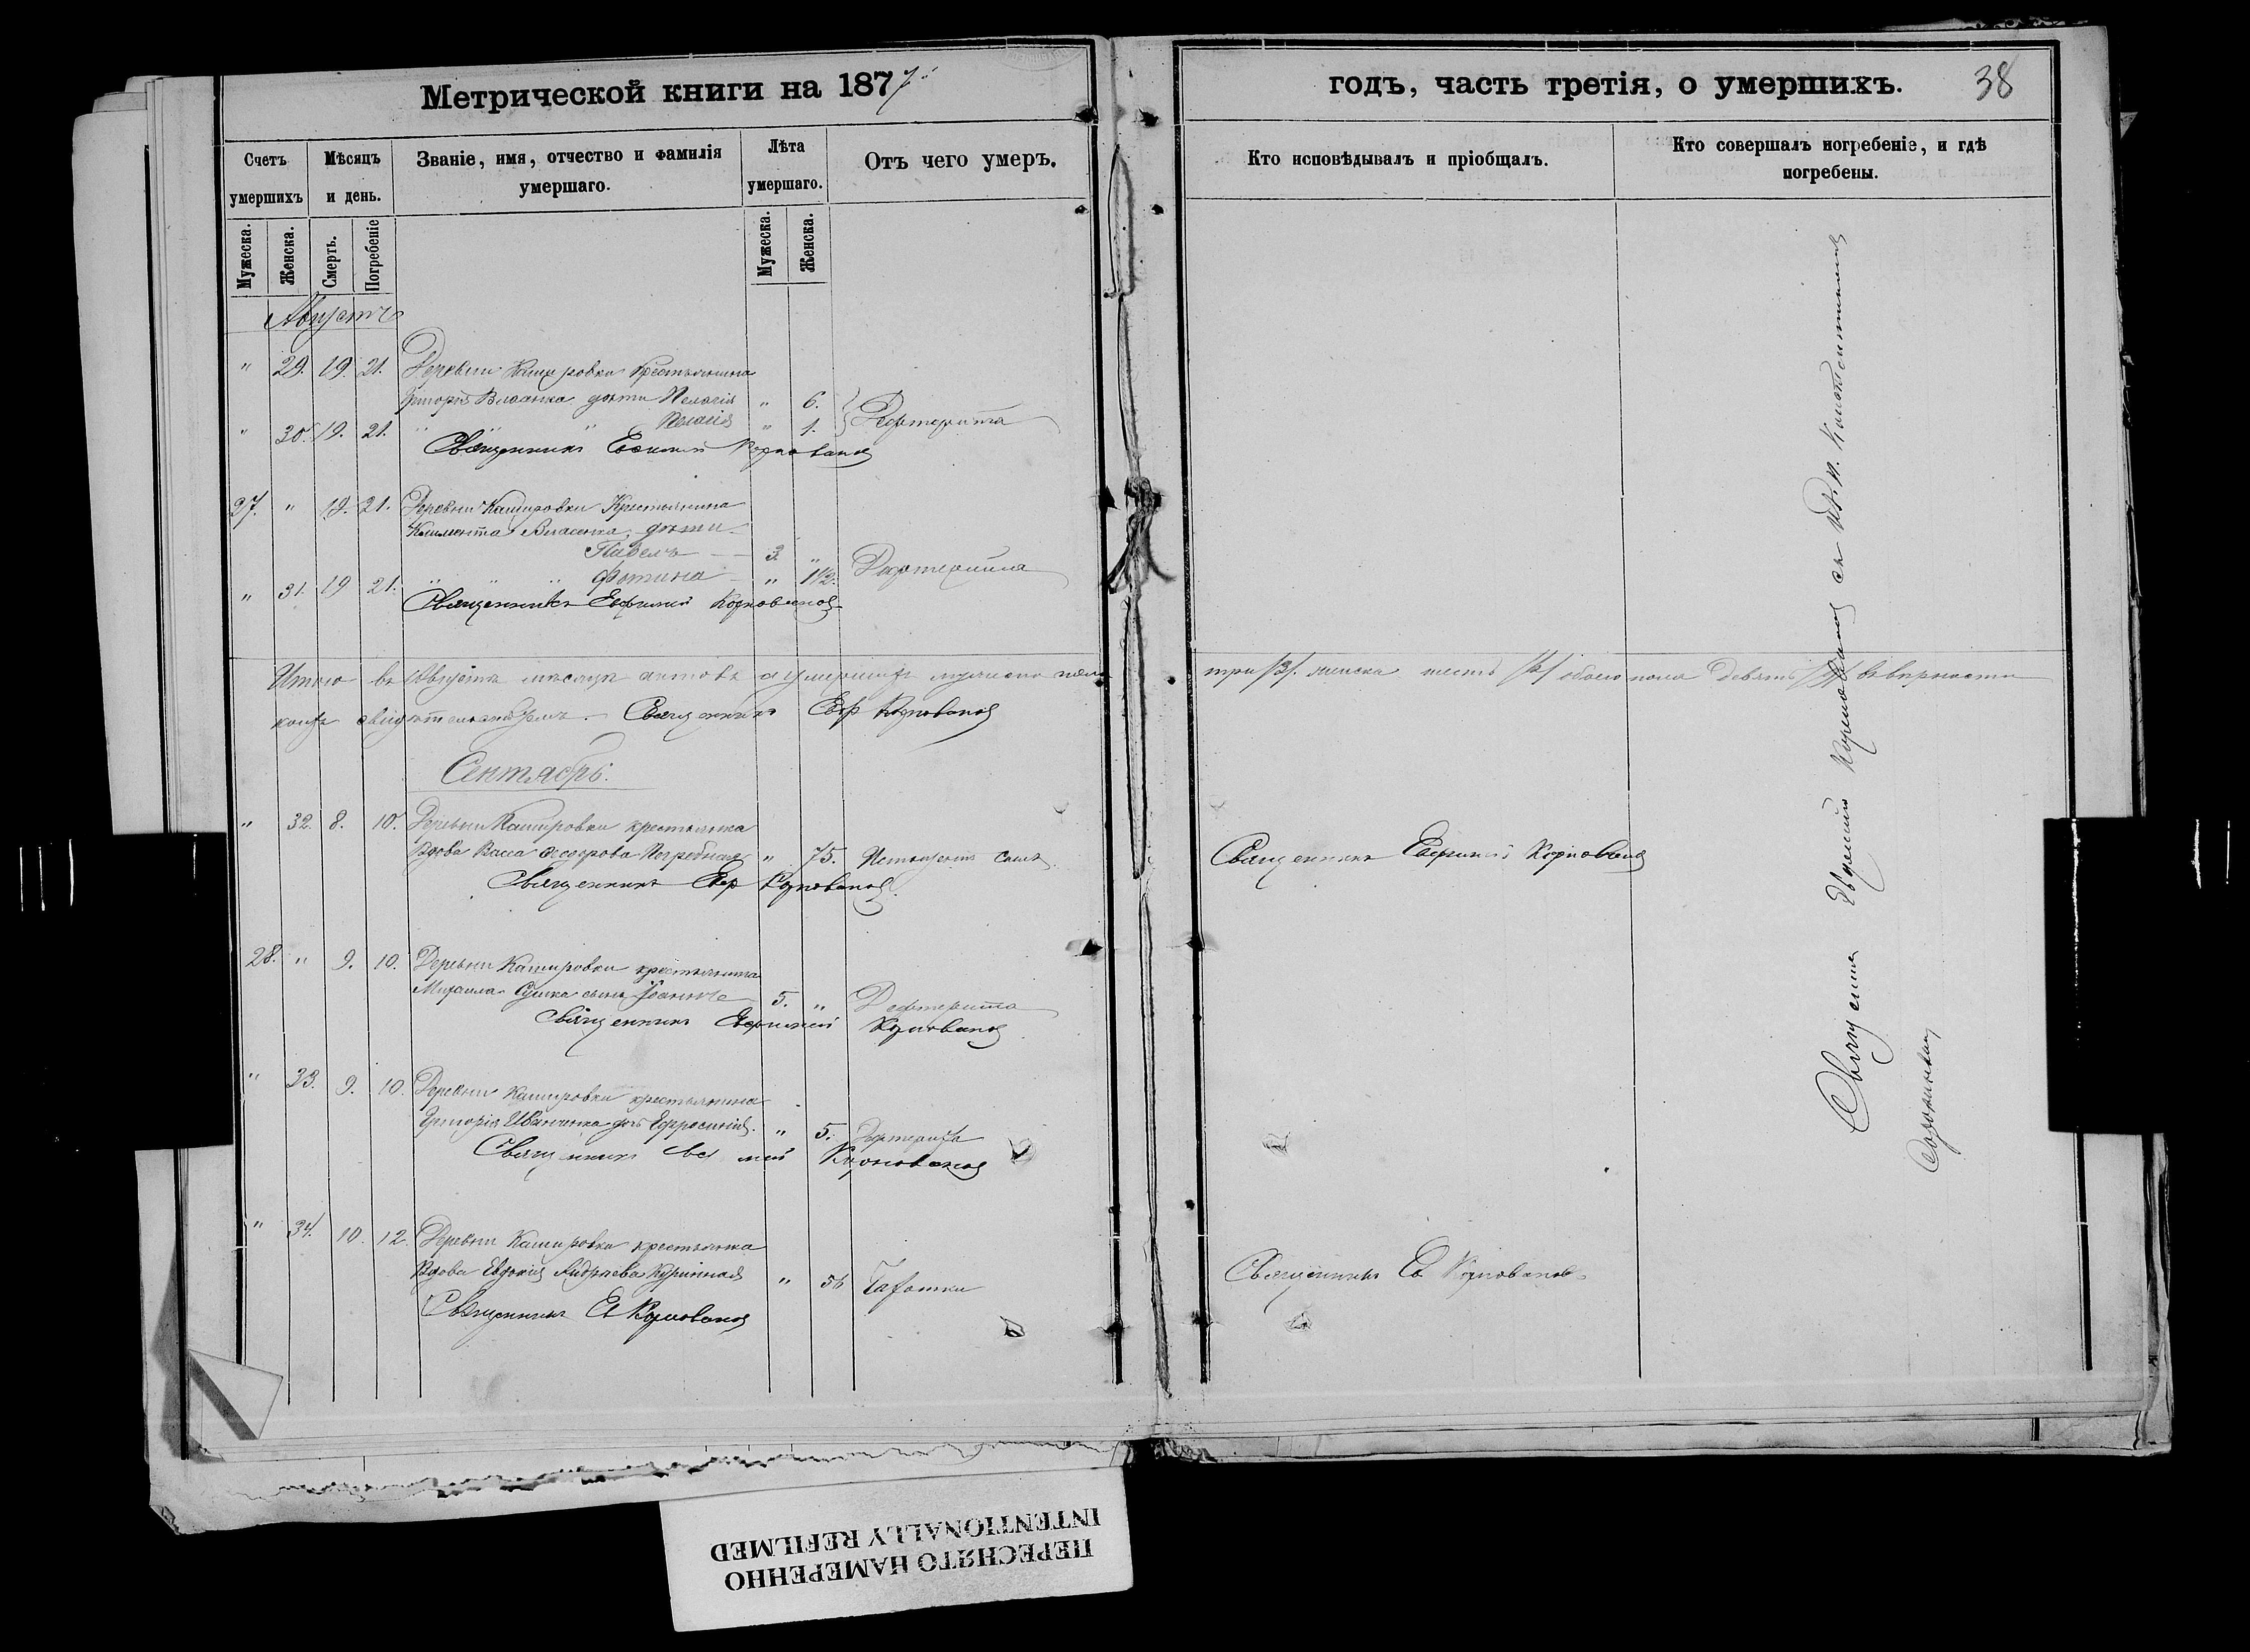 Метрической книги на 1877
годъ, часть третія, о умершихъ.
38
Счетъ умершихъ
Мѣсяцъ и день.
Званіе, имя, отчество и фамилія умершаго.
Лѣта умершаго.
Отъ чего умеръ.
Кто исповѣдывалъ и пріобщалъ.
Кто совершалъ погребеніе, и гдѣ погребены.
Мужеска.
Женска.
Смерть.
Погребеніе
Мужеска.
Женска.
Августъ
" 29. 19. 21. Деревни Кашировки крестьянина
Григорія Власенка дѣти Пелагія " 6.
" 30. 19. 21. " " Пелагія " 1. Дефтерита
Священникъ Евфимій Корнованов
27. " 19. 21. Деревни Кашировки Крестьянина
Климента Власенка, дѣти
Павелъ 3. "
" 31. 19 21. " " " Фотина " 1 1/2. Дефтерита
Священникъ Евфимій Корнованов
Итого въ Августѣ мѣсяцѣ актовъ о умершихъ мужеска пола три /3/. женска шесть обоего пола девять /9/ въ вѣрности
коихъ свидѣтельствуемъ. Священникъ Евф Корнованов
Сентябрь.
" 32. 8. 10. Деревни Кашировки крестьянка
Вдова Васса Феодорова Погребная " 75. Священникъ Евфимій Корнованов
Священникъ Евф Корнованов
28. " 9. 10. Деревни Кашировки крестьянина
Михаила сынъ Іоаннъ 5. " Дефтерита
Священникъ Евфимій Корнованов
" 33. 9. 10. Деревни Кашировки крестьянина
Григорія Иванченка дочь Ефросинія. " 5. Дефтерита
Священникъ Корнованов
" 34. 10. 12. Деревни Кашировки крестьянка
Вдова Евдокія Андреева " Чахотки Священникъ Ев Корнованов
Священникъ Ев Корнованов
Священникъ Евфимій Корнованов съ
ПЕРЕСНЯТО НАМЕРЕННО
INTENTIONALLY REFILMED